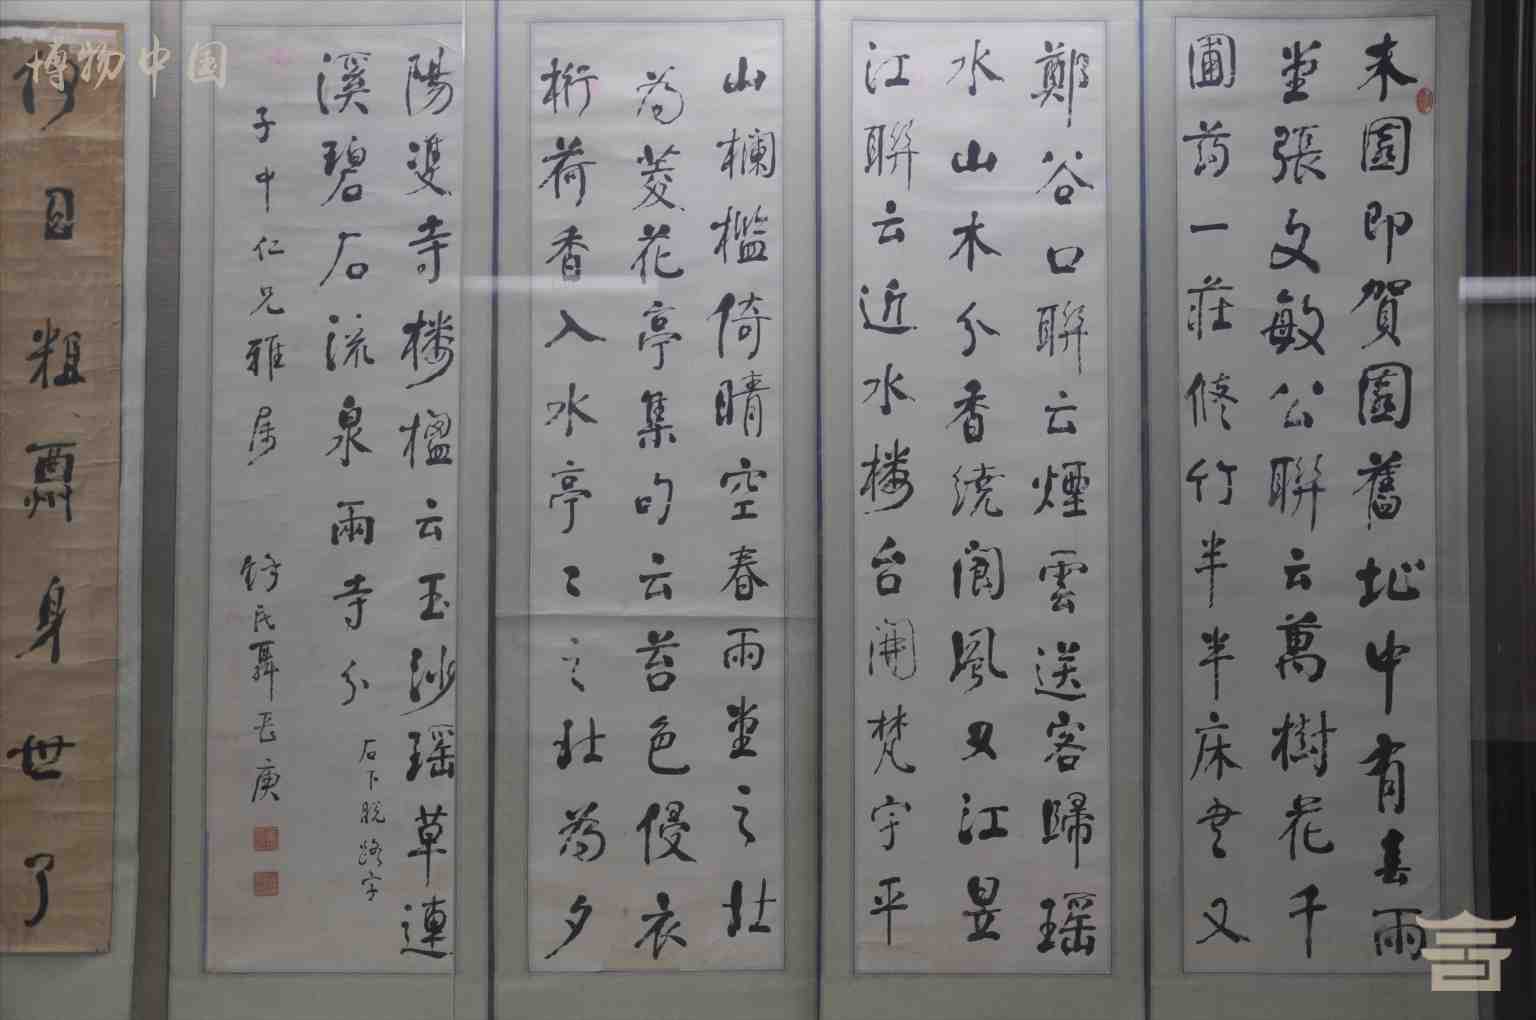 东園即賀園舊址中有春雨
堂張文敏公聯云萬樹花千
圃葯一莊修竹半半床書又
鄭谷口聯云煙雲送客歸瑶
水山木分香繞閬風又江昱
江聯云近水楼台開梵宇平
山欄檻倚晴空春雨堂之北
為菱花亭集句云苔色侵衣
桁荷香入水亭亭之北為夕
陽雙寺楼楹云玉沙瑶草連
溪碧石流泉兩寺分
石下脱路字
子中仁兄雅属
錞民聶
庚
何日粗
身世了
博物中国